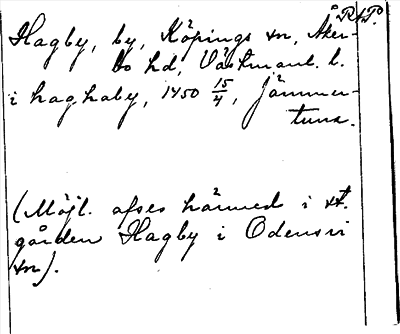 Hagby, by, Köpings sn, Åker-
bo hd, Västmanl. l.
i haghaby, 1450 15/4, Jämmer-
tuna.
RAP.
(Möjl. afses härmed i st.
gården Hagby i Odensvi
sn).